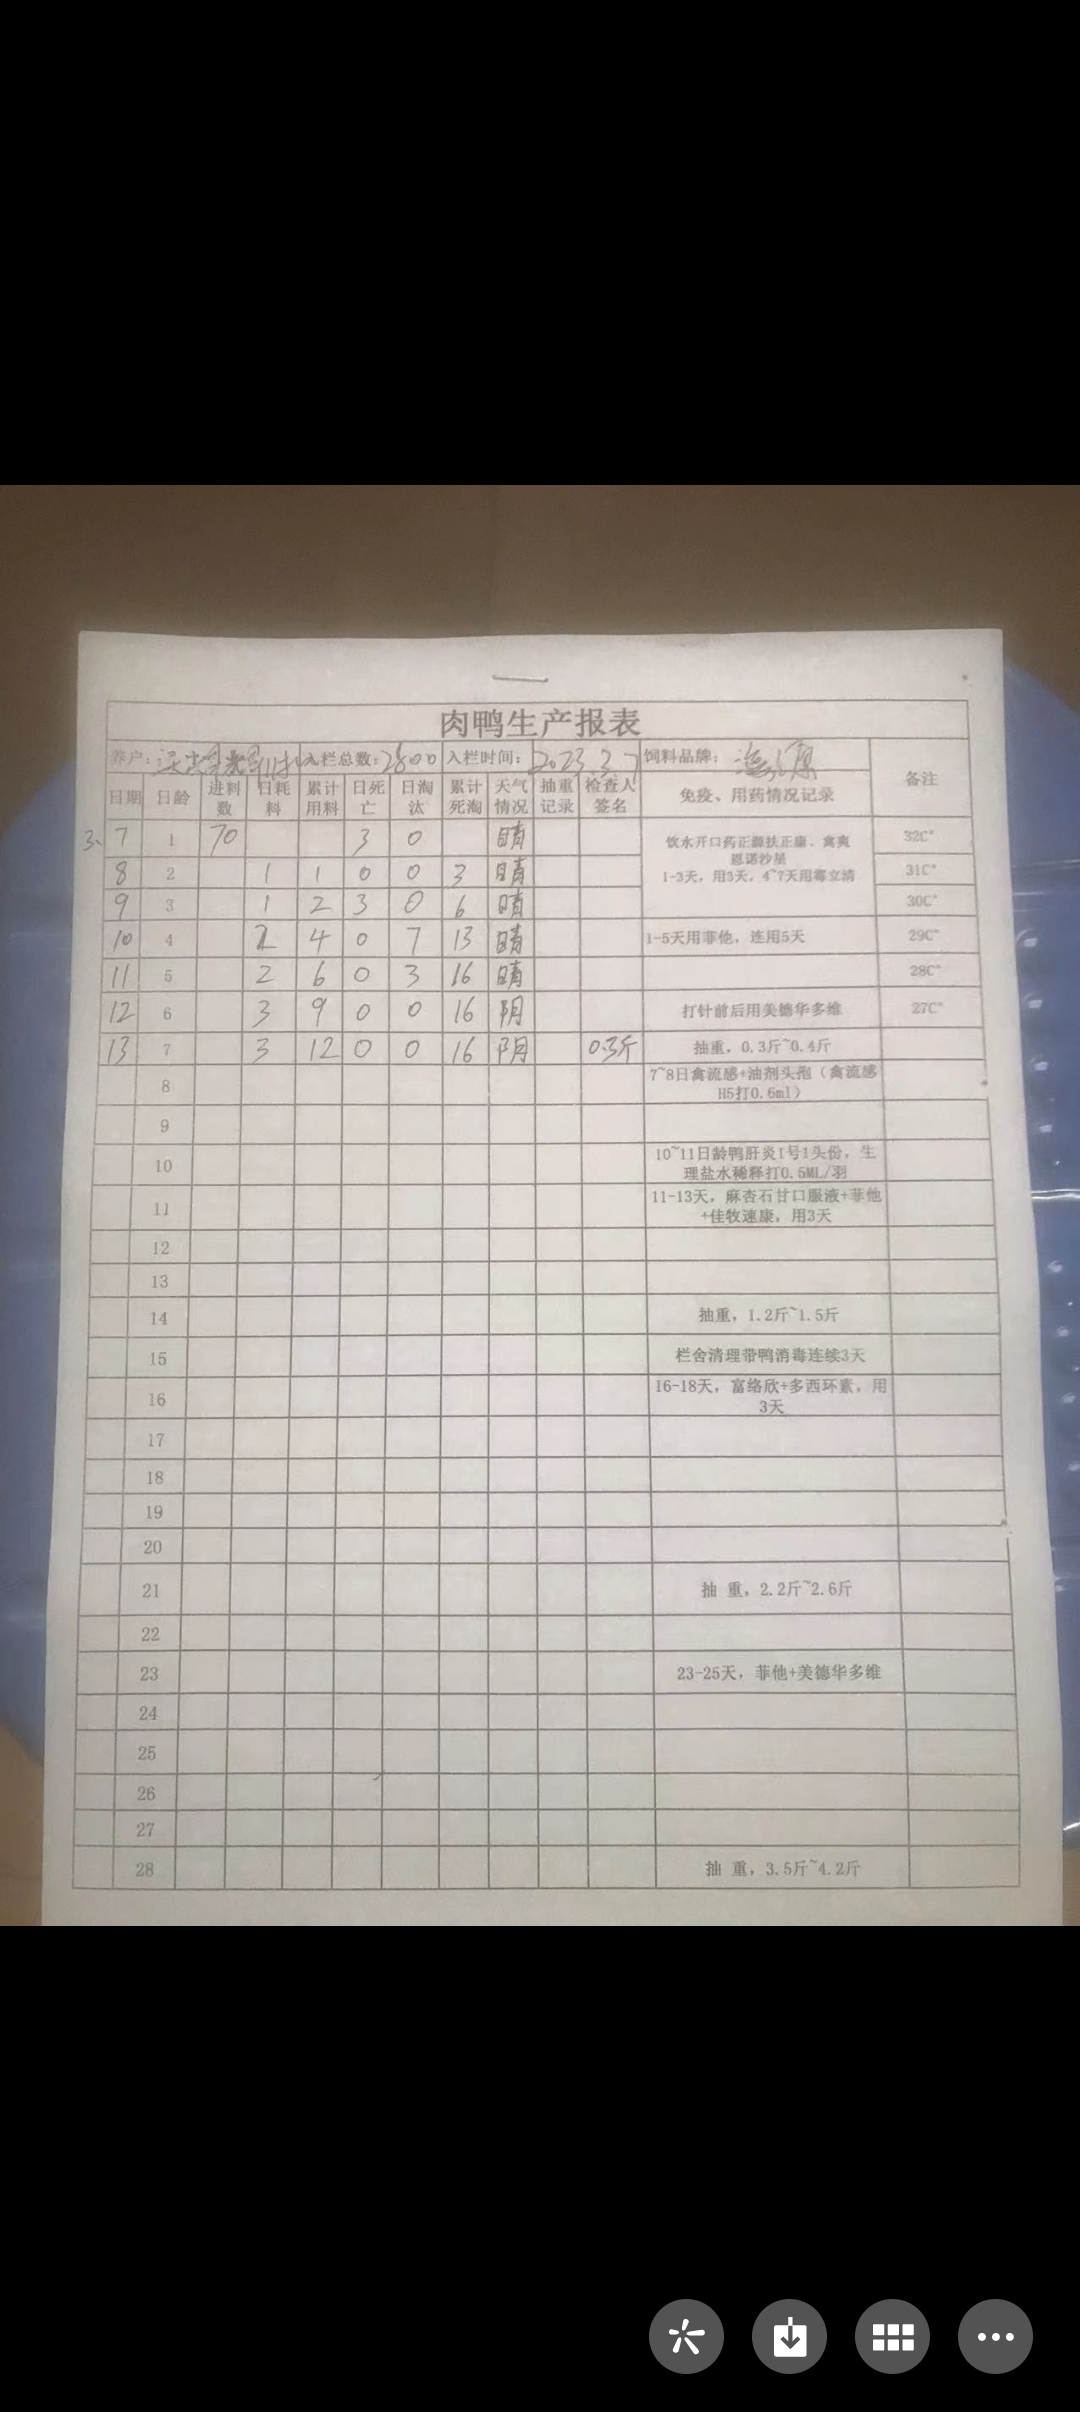 肉鸭生产报表
养户： 入栏总数：2800 入栏时间：2023.3.7 饲料品牌： 备注
日期 日龄 进料数 日耗料 累计用料 日死亡 日淘汰 累计死淘 天气情况 抽重记录 检查人签名 免疫、用药情况记录
3.7 1 70 3 0 晴 饮水开口药正源扶正康、禽爽 32C°
恩诺沙星
8 2 1 1 0 0 3 晴 1-3天，用3天，4~7天用霉立清 31C°
9 3 1 2 3 0 6 晴 30C°
10 4 2 4 0 7 13 晴 1-5天用菲他，连用5天 29C°
11 5 2 6 0 3 16 晴 28C°
12 6 3 9 0 0 16 阴 打针前后用美德华多维 27C°
13 7 3 12 0 0 16 阴 0.3斤 抽重，0.3斤~0.4斤
8 7~8日禽流感+油剂头孢（禽流感
H5打0.6ml）
9
10 10~11日龄鸭肝炎1号1头份，生
理盐水稀释打0.5ML/羽
11 11-13天，麻杏石甘口服液+菲他
+佳牧速康，用3天
12
13
14 抽重，1.2斤~1.5斤
15 栏舍清理带鸭消毒连续3天
16 16-18天，富络欣+多西环素，用
3天
17
18
19
20
21 抽 重，2.2斤~2.6斤
22
23 23-25天，菲他+美德华多维
24
25
26
27
28 抽 重，3.5斤~4.2斤